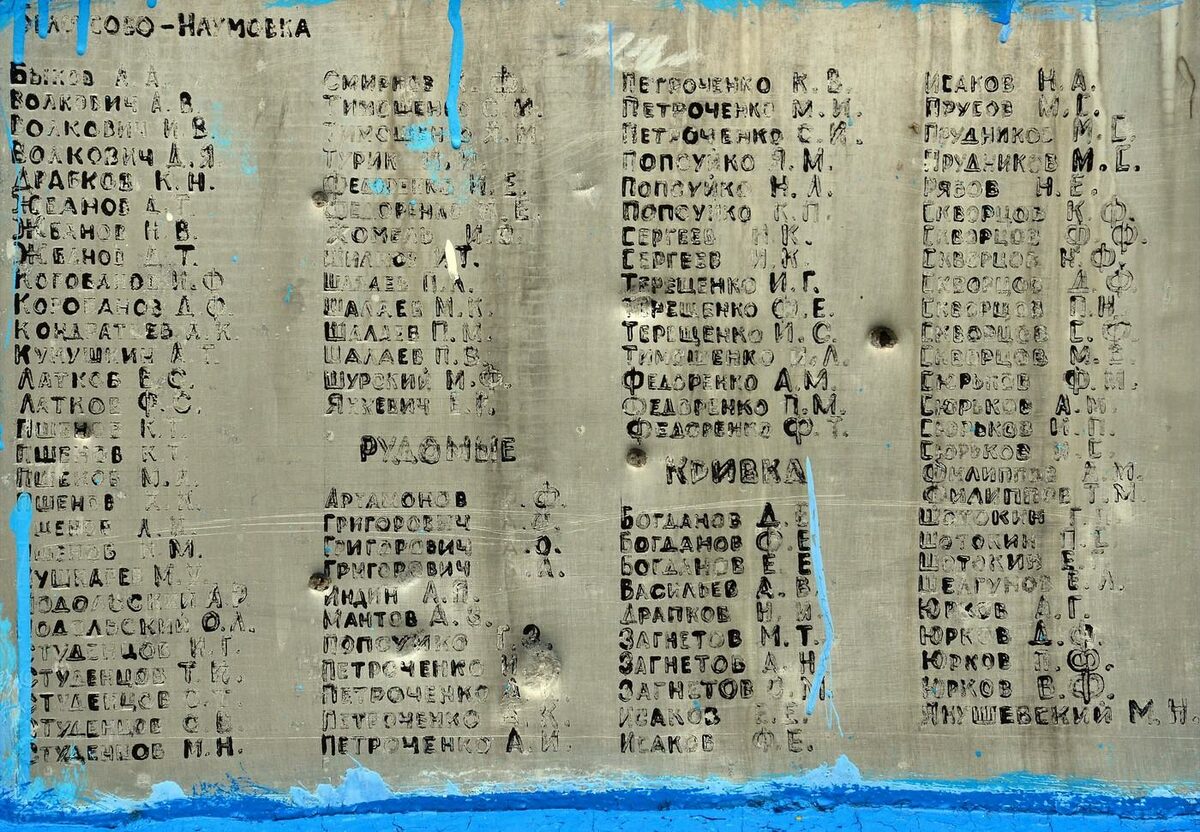 СОВО-НАУМОВКА
БЫКОВ А.А.
ВОЛКОВИЧ А.В.
ВОЛКОВИЧ И.В.
ВОЛКОВИЧ Д.Я.
ДРАБКОВ К.Н.
ЖБАНОВ А.Т.
ЖБАНОВ Н.В.
ЖБАНОВ Д.Т.
КОГОБАНОВ И.Ф
КОГОБАНОВ Д.Ф.
КОНДРАТЬЕВ А.К.
КУКУШКИН А.Т.
ЛАТКОВ Е.С.
ЛАТКОВ Ф.С.
ПШЕНОВ К.
ПШЕНОВ К.Т.
ПШЕНОВ М.
ПШЕНОВ
ПШЕНОВ А.
ПШЕНОВ М.
ПУШКАРЕВ М.
ПОДОЛЬСКИЙ А.
ПОДОЛЬСКИЙ О.Л.
СТУДЕНЦОВ И.Г.
СТУДЕНЦОВ Т.К.
СТУДЕНЦОВ С.Т.
СТУДЕНЦОВ С.В.
СТУДЕНЦОВ М.Н.
СМИРНОВ Ф.
ТИМОШЕНКО И.
ТИМОШЕНКО М.
ТУРИК
ФЕДОРЕНКО Н.Е.
ФЕДОРЕНКО Е.
ХОМЕЛЬ И.
И.Т.
ШАЛАЕВ П.А.
ШАЛАЕВ М.К.
ШАЛАЕВ П.М.
ШАЛАЕВ П.В.
ШУРСКИЙ М.Ф.
ЯЦКЕВИЧ Е.Г.
РУДОМЫЕ
АРТАМОНОВ Ф.
ГРИГОРОВИЧ А.О.
ГРИГОРОВИЧ А.О.
ГРИГОРОВИЧ А.
ИНДИН А.П.
МАНТОВ А.В.
ПОПСУЙКО Г.
ПЕТРОЧЕНКО И
ПЕТРОЧЕНКО А
ПЕТРОЧЕНКО К.
ПЕТРОЧЕНКО А.И.
ПЕТРОЧЕНКО К.В.
ПЕТРОЧЕНКО М.И.
ПЕТРОЧЕНКО С.И.
ПОПСУЙКО Я.М.
ПОПСУЙКО Н.Л.
ПОПСУЙКО К.П.
СЕРГЕЕВ Н.К.
СЕРГЕЕВ И.К.
ТЕРЕЩЕНКО И.Г.
ТЕРЕЩЕНКО Ф.Е.
ТЕРЕЩЕНКО И.С.
ТИМОШЕНКО И.Л.
ФЕДОРЕНКО А.М.
ФЕДОРЕНКО П.М.
ФЕДОРЕНКО Ф.Т.
КРИВКА
БОГДАНОВ Д.Е
БОГДАНОВ Ф.Е
БОГДАНОВ Е.Е
ВАСИЛЬЕВ А.В.
ДРАПКОВ Н.И.
ЗАГНЕТОВ М.Т.
ЗАГНЕТОВ А.Н
ЗАГНЕТОВ М.
ИСАКОВ Е.Е.
ИСАКОВ Ф.Е.
ИСАКОВ Н.А.
ПРУСОВ М.С.
ПРУДНИКОВ М.С.
ПРУДНИКОВ М.С.
РЯБОВ Н.Е.
СКВОРЦОВ К.Ф.
СКВОРЦОВ Ф.Ф.
СКВОРЦОВ Н.Ф.
СКВОРЦОВ Д.Ф
СКВОРЦОВ П.Н.
СКВОРЦОВ С.Ф
СКВОРЦОВ М.Е.
СЮРЬКОВ Ф.М.
СЮРЬКОВ А.М.
СЮРЬКОВ И.П.
СЮРЬКОВ Я.С.
ФИЛИППОВ Д.М.
ФИЛИППОВ Т.М.
ШОТОКИН Г.
ШОТОКИН П.
ШОТОКИН Е.
ШЕЛГУНОВ Е.Л.
ЮРКОВ А.Г.
ЮРКОВ Д.Ф.
ЮРКОВ П.Ф.
ЮРКОВ В.Ф.
ЯНУШЕВСКИЙ М.Н.